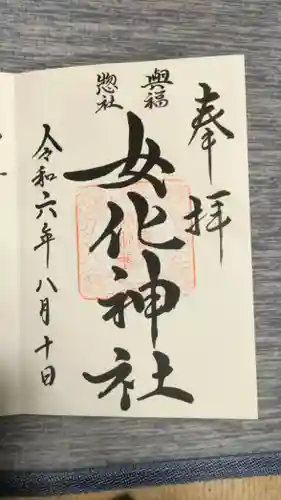 奉拝
興福
惣社
女化神社
令和六年八月十日